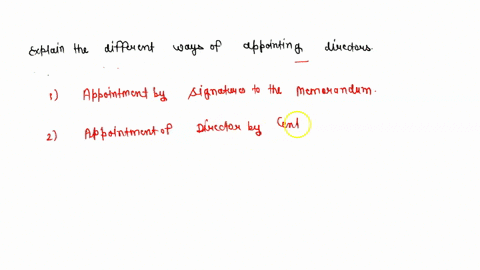 Explain the different ways of appointing directors.
1) Appointment by signatures to the Memorandum.
2) Appointment of Director by Cent